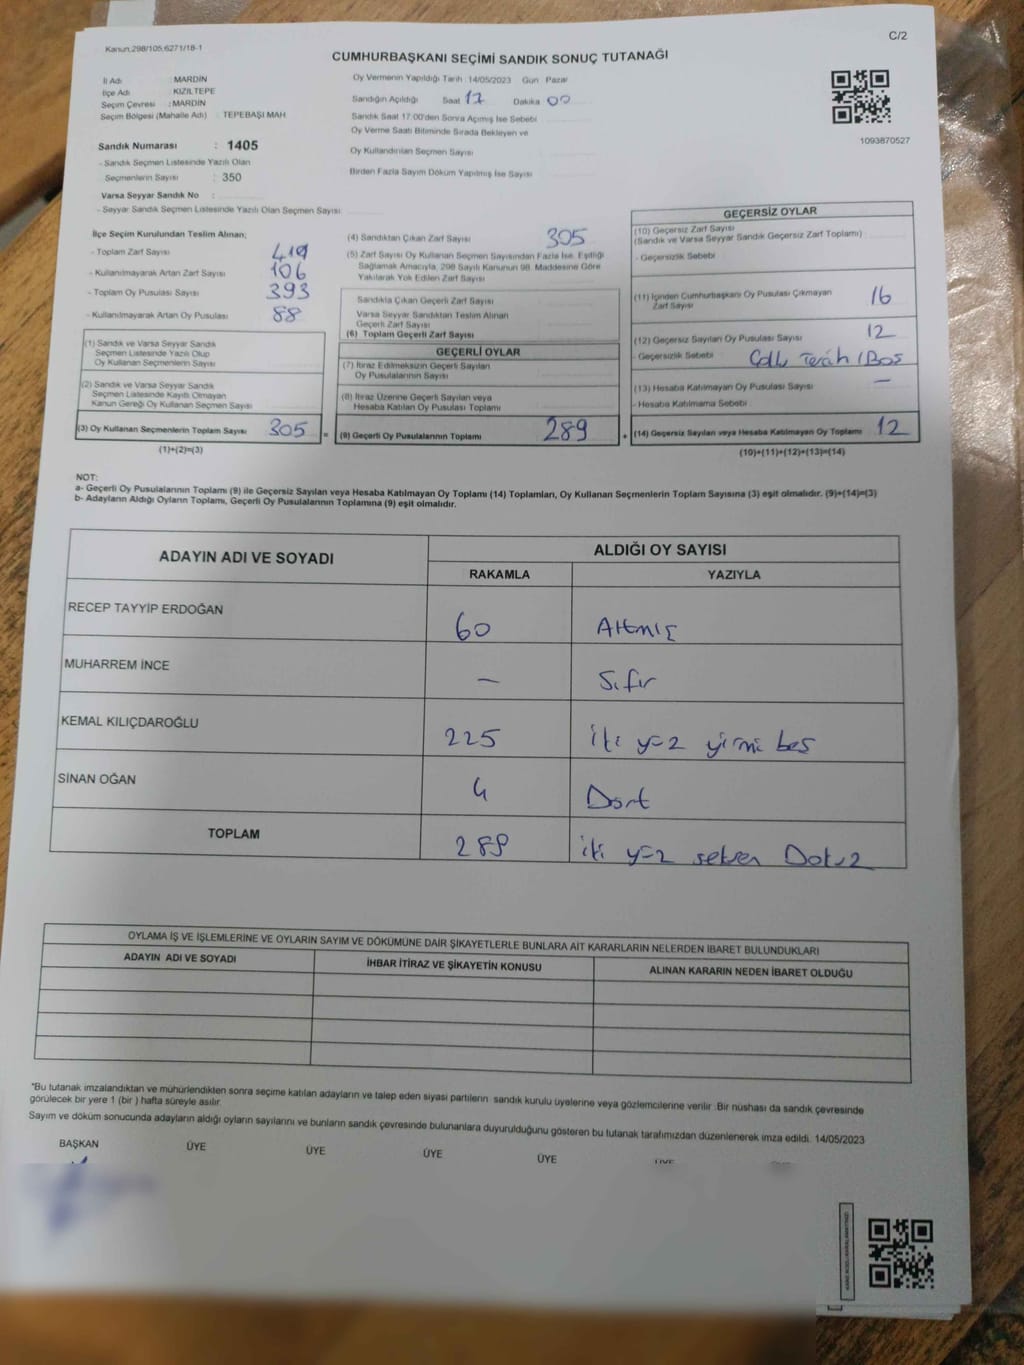 Kanun:298/105;6271/18-1
C/2
CUMHURBAŞKANI SEÇİMİ SANDIK SONUÇ TUTANAĞI
İl Adı : MARDİN
İlçe Adı : KIZILTEPE
Seçim Çevresi : MARDİN
Seçim Bölgesi (Mahalle Adı) : TEPEBAŞI MAH
Sandık Numarası : 1405
- Sandık Seçmen Listesinde Yazılı Olan
Seçmenlerin Sayısı : 350
Varsa Seyyar Sandık No :
- Seyyar Sandık Seçmen Listesinde Yazılı Olan Seçmen Sayısı
Oy Vermenin Yapıldığı Tarih : 14/05/2023 Gün Pazar
Sandığın Açıldığı Saat 17 Dakika 00
Sandık Saat 17:00'den Sonra Açmış İse Sebebi
Oy Verme Saati Bitiminde Sırada Bekleyen ve
Oy Kullandırılan Seçmen Sayısı
Birden Fazla Sayım Döküm Yapılmış İse Sayısı
1093870527
İlçe Seçim Kurulundan Teslim Alınan;
- Toplam Zarf Sayısı 419
- Kullanılmayarak Artan Zarf Sayısı 106
- Toplam Oy Pusulası Sayısı 393
- Kullanılmayarak Artan Oy Pusulası 88
(1) Sandık ve Varsa Seyyar Sandık
Seçmen Listesinde Yazılı Olup
Oy Kullanan Seçmenlerin Sayısı
(2) Sandık ve Varsa Seyyar Sandık
Seçmen Listesinde Kayıtlı Olmayan
Kanun Gereği Oy Kullanan Seçmen Sayısı
(3) Oy Kullanan Seçmenlerin Toplam Sayısı 305 =
(1)+(2)=(3)
(4) Sandıktan Çıkan Zarf Sayısı 305
(5) Zarf Sayısı Oy Kullanan Seçmen Sayısından Fazla İse, Eşitliği
Sağlamak Amacıyla, 298 Sayılı Kanunun 98. Maddesine Göre
Yakılarak Yok Edilen Zarf Sayısı
Sandıkla Çıkan Geçerli Zarf Sayısı
Varsa Seyyar Sandıktan Teslim Alınan
Geçerli Zarf Sayısı
(6) Toplam Geçerli Zarf Sayısı
GEÇERLİ OYLAR
(7) İtiraz Edilmeksizin Geçerli Sayılan
Oy Pusulalarının Sayısı
(8) İtiraz Üzerine Geçerli Sayılan veya
Hesaba Katılan Oy Pusulası Toplamı
(9) Geçerli Oy Pusulalarının Toplamı 289 +
GEÇERSİZ OYLAR
(10) Geçersiz Zarf Sayısı
(Sandık ve Varsa Seyyar Sandık Geçersiz Zarf Toplamı)
- Geçersizlik Sebebi
(11) İçinden Cumhurbaşkanı Oy Pusulası Çıkmayan
Zarf Sayısı 16
(12) Geçersiz Sayılan Oy Pusulası Sayısı 12
- Geçersizlik Sebebi
(13) Hesaba Katılmayan Oy Pusulası Sayısı —
- Hesaba Katılmama Sebebi
(14) Geçersiz Sayılan veya Hesaba Katılmayan Oy Toplamı 12
(10)+(11)+(12)+(13)=(14)
NOT:
a- Geçerli Oy Pusulalarının Toplamı (9) ile Geçersiz Sayılan veya Hesaba Katılmayan Oy Toplamı (14) Toplamları, Oy Kullanan Seçmenlerin Toplam Sayısına (3) eşit olmalıdır. (9)+(14)=(3)
b- Adayların Aldığı Oyların Toplamı, Geçerli Oy Pusulalarının Toplamına (9) eşit olmalıdır.
ADAYIN ADI VE SOYADI
ALDIĞI OY SAYISI
RAKAMLA YAZIYLA
RECEP TAYYİP ERDOĞAN 60 Altmış
MUHARREM İNCE — Sıfır
KEMAL KILIÇDAROĞLU 225 iki yüz yirmi beş
SİNAN OĞAN 4 Dört
TOPLAM 289 iki yüz seksen Dokuz
OYLAMA İŞ VE İŞLEMLERİNE VE OYLARIN SAYIM VE DÖKÜMÜNE DAİR ŞİKAYETLERLE BUNLARA AİT KARARLARIN NELERDEN İBARET BULUNDUKLARI
ADAYIN ADI VE SOYADI İHBAR İTİRAZ VE ŞİKAYETİN KONUSU ALINAN KARARIN NEDEN İBARET OLDUĞU
"Bu tutanak imzalandıktan ve mühürlendikten sonra seçime katılan adayların ve talep eden siyasi partilerin sandık kurulu üyelerine veya gözlemcilerine verilir. Bir nüshası da sandık çevresinde
görülecek bir yere 1 (bir ) hafta süreyle asılır.
Sayım ve döküm sonucunda adayların aldığı oyların sayılarını ve bunların sandık çevresinde bulunanlara duyurulduğunu gösteren bu tutanak tarafımızdan düzenlenerek imza edildi. 14/05/2023
BAŞKAN ÜYE ÜYE ÜYE ÜYE